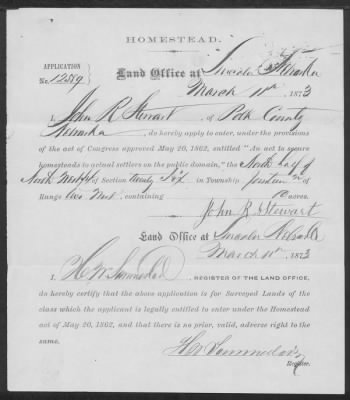 HOMESTEAD.
APPLICATION
No. 12519
Land Office at Lincoln Nebraska
March 11th, 1873
I, John R Stewart, of Polk County
Nebraska, do hereby apply to enter, under the provisions
of the act of Congress approved May 20, 1862, entitled "An act to secure
homesteads to actual settlers on the public domain," the North half of
North West ¼ of Section twenty Six in Township fourteen N of
Range two West, containing 80 acres.
John R Stewart
Land Office at Lincoln Nebraska
March 11th, 1873
I, REGISTER OF THE LAND OFFICE,
do hereby certify that the above application is for Surveyed Lands of the
class which the applicant is legally entitled to enter under the Homestead
act of May 20, 1862, and that there is no prior, valid, adverse right to the
same.
Register.